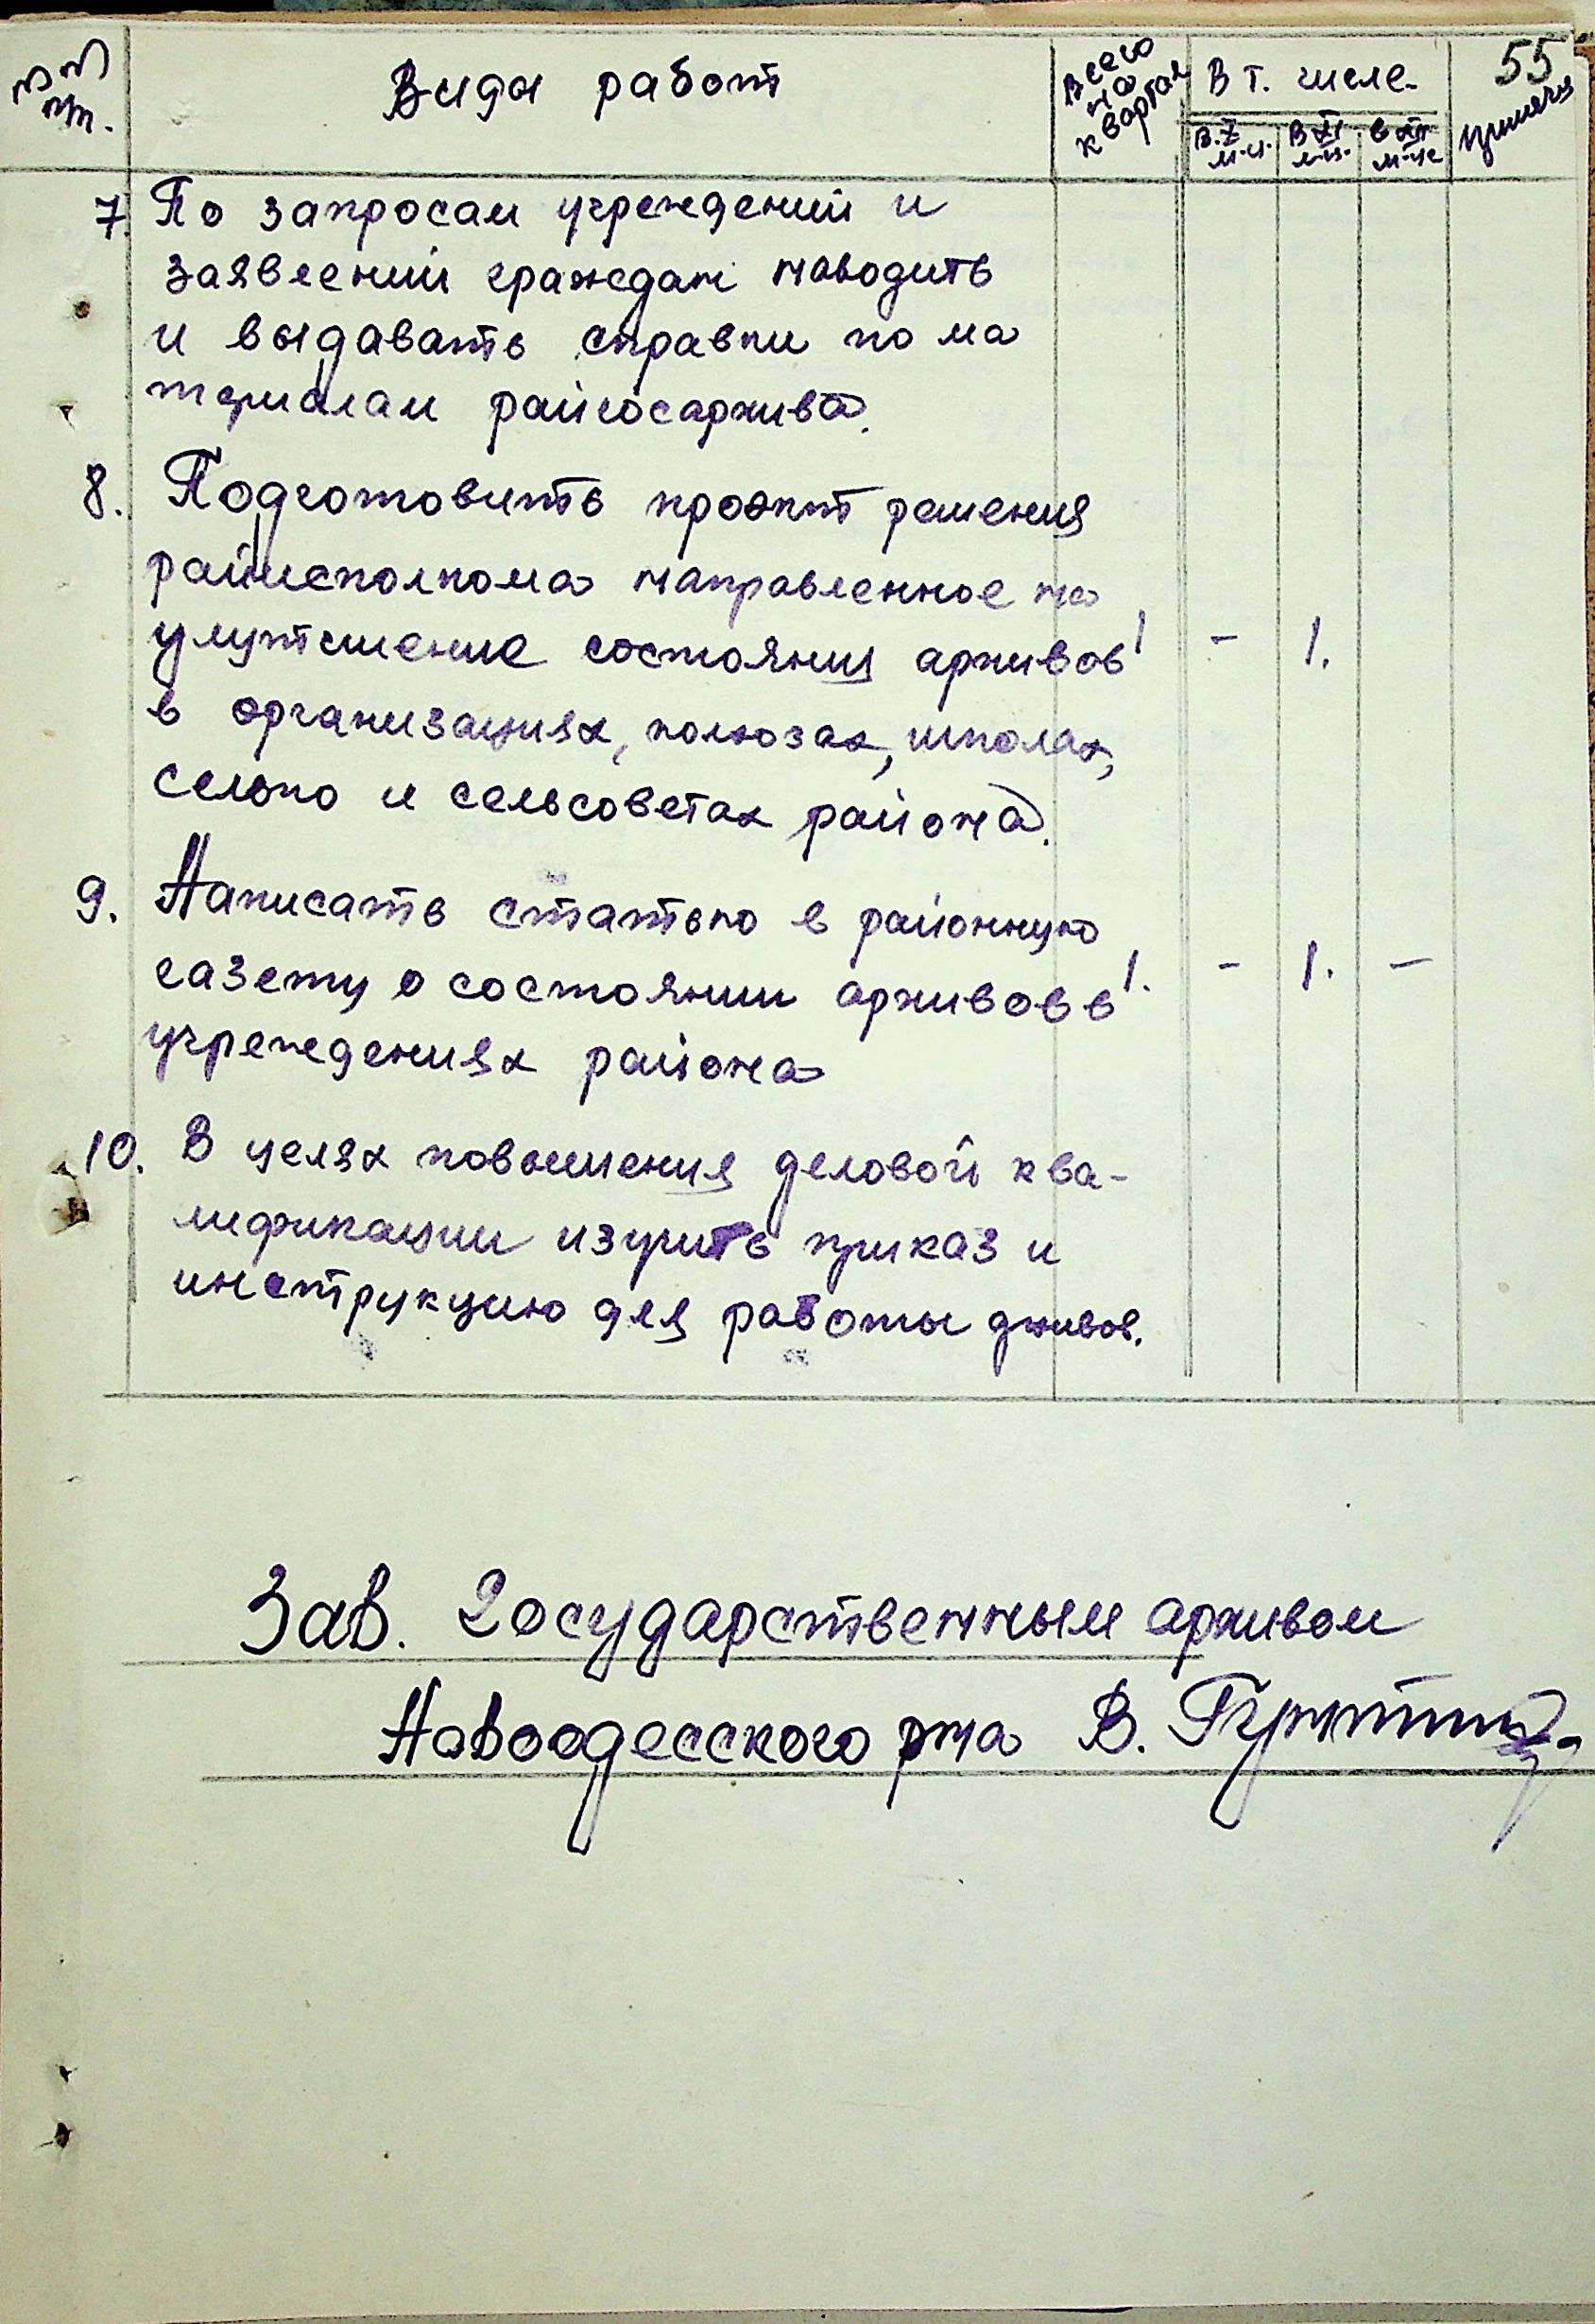 55
пп
шт.
Виды работ
Всего
на
квартал
В т. числе
в X
м-ц.
в XI
м-ц.
в XII
м-це
примеч
7. По запросам учреждений и
заявлений граждан наводить
и выдавать справки по ма
териалам райгосархива.
8. Подготовить проэкт решения
райисполкома направленное на
улутшение состояния архивов 1 - 1.
в организациях, колхозах, школах,
сельпо и сельсоветах района.
9. Написать статью в районную
газету о состоянии архивов в 1. - 1. -
учреждениях района
10. В целях повышения деловой ква-
лификации изучить приказ и
инструкцию для работы
Зав. Государственным архивом
Новоодесского р-на В.